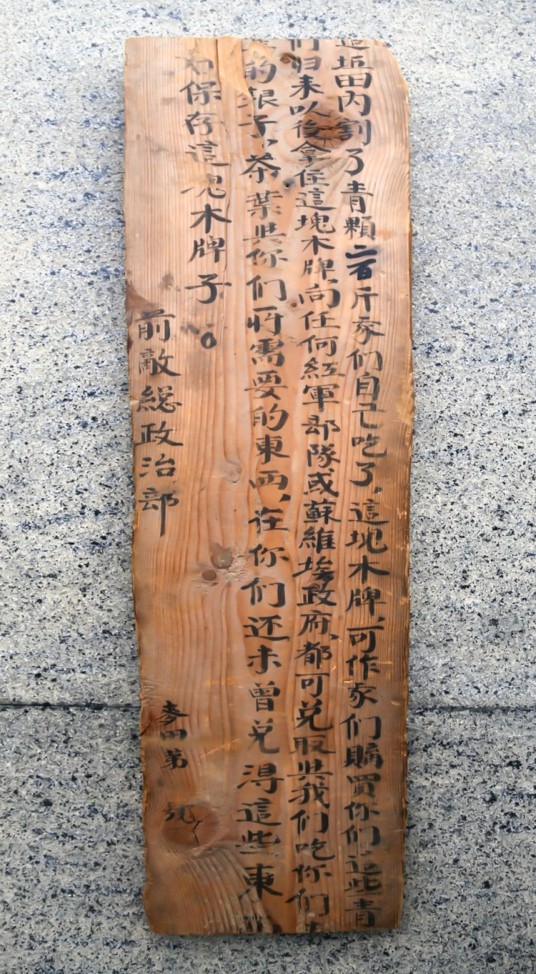 這坵田内割了青顆二百斤家们自己吃了,這塊木牌,可作家们購買你们這些青
们归来以後拿住這塊木牌向任何紅軍部隊或蘇維埃政府,都可兑取與我们吃你们
的粮子,茶葉與你们所需要的東西,在你们还未曾兑得這些東
保存這塊木牌子。
前敵総政治部
麥田第 號